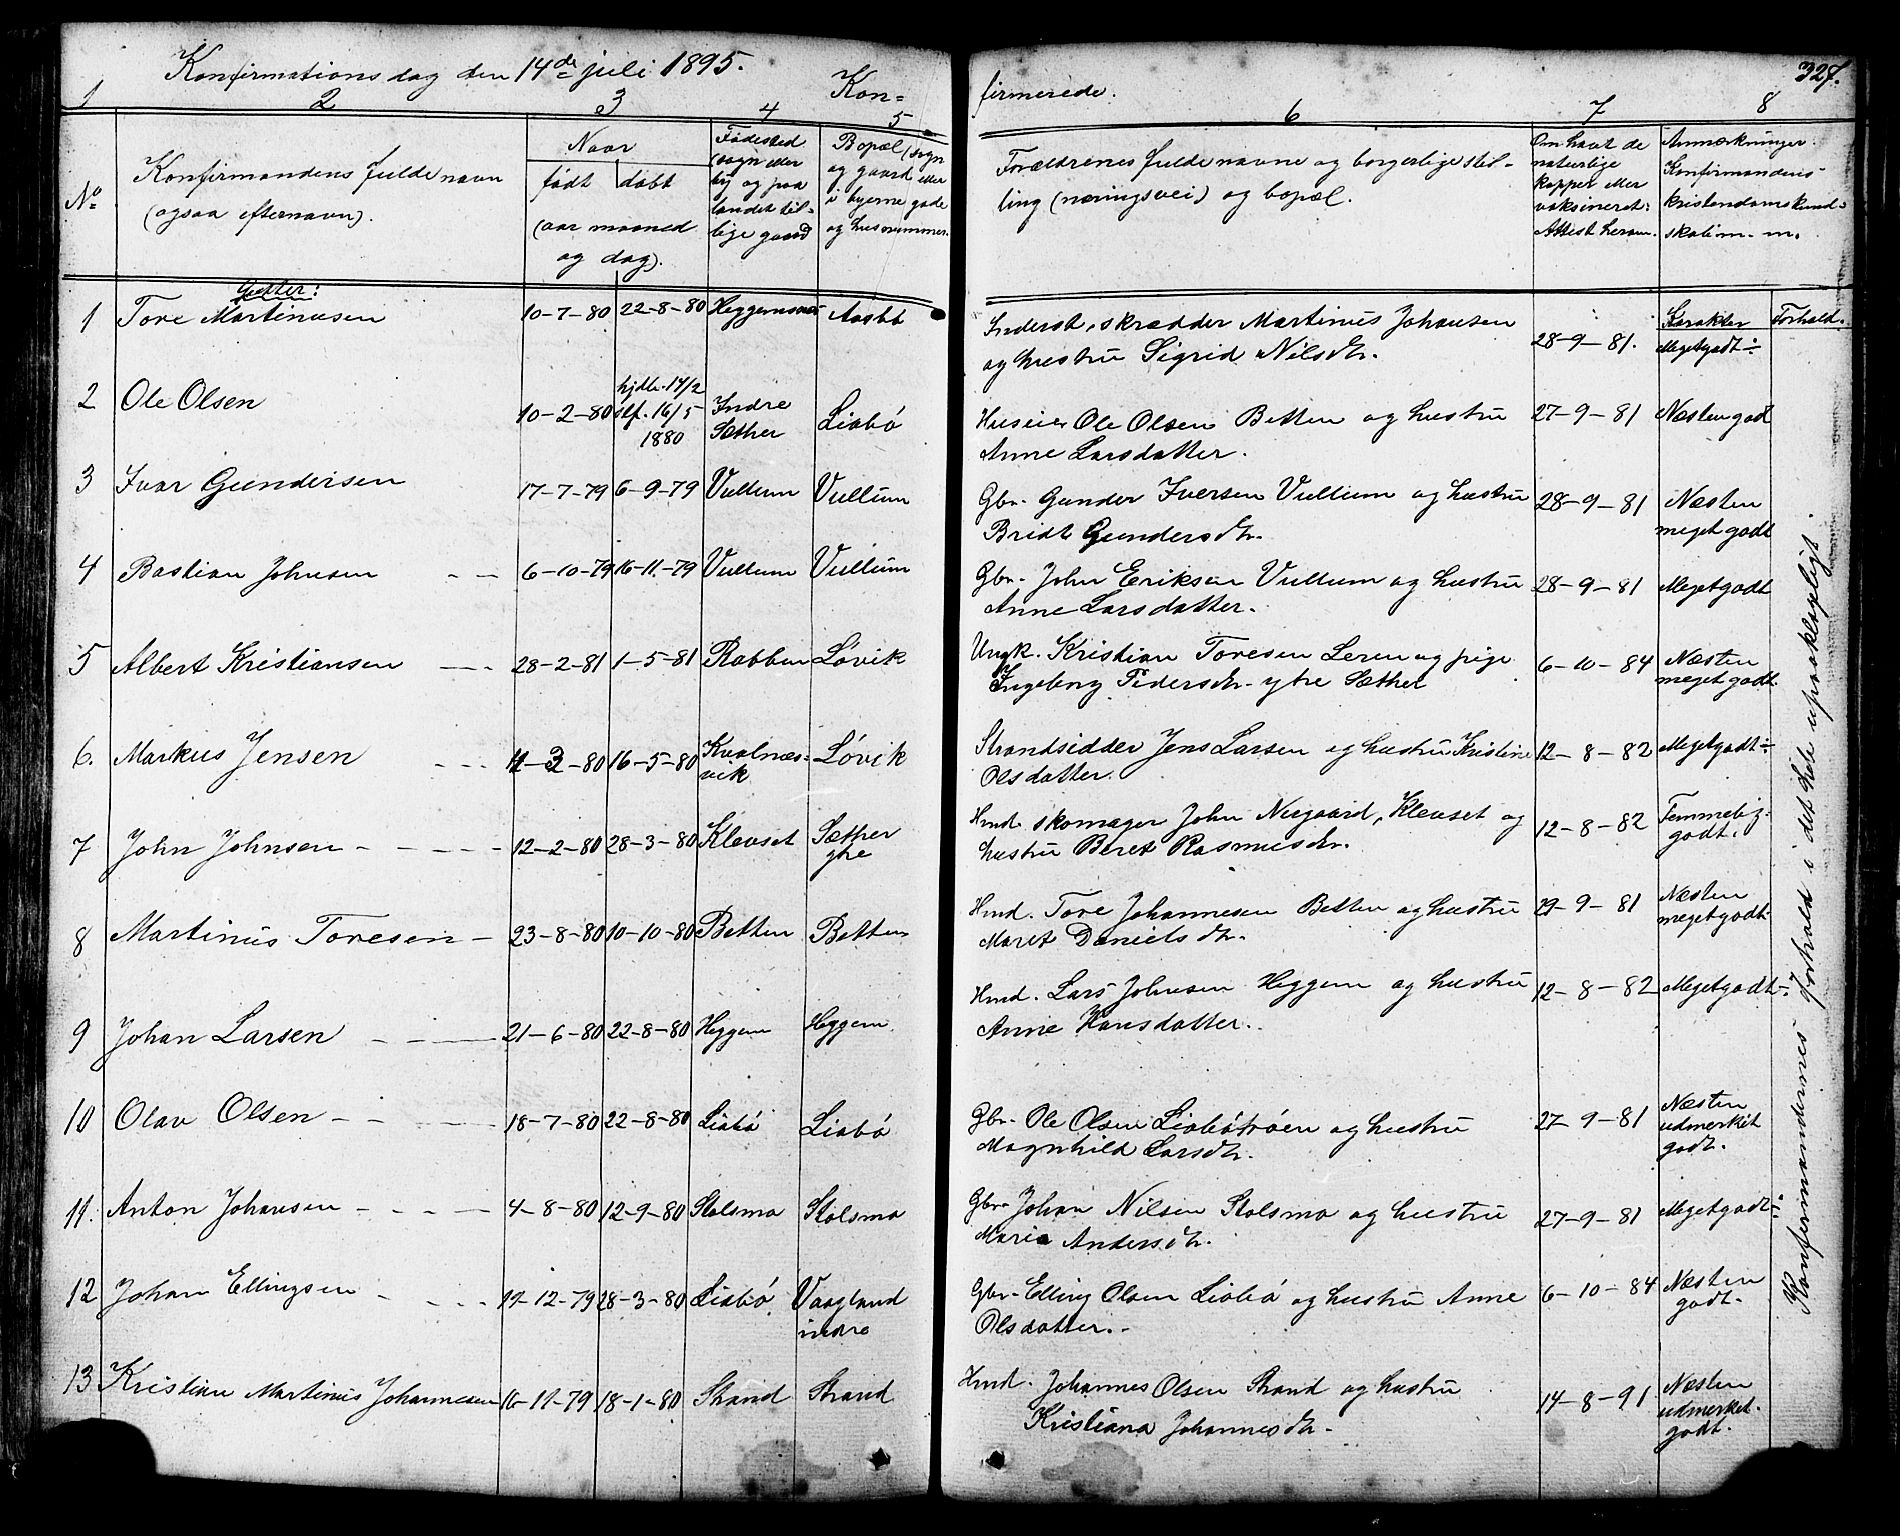 Konfirmationsdag den 14de juli 1895.
Kon-
firmerede.
327.
1 2 3 4 5 6 7 8
No
Konfirmandens fulde navn
(ogsaa efternavn).
Naar
født døbt
(aar maaned
og dag).
Fødested
(sogn eller
by og paa
landet til-
lige gaard
Bopæl (sogn
og gaard eller
i byerne gade
og husnummer.
Forældrenes fulde navne og borgerlige stil-
ling (næringsvei) og bopæl.
Om havt de
naturlige
kopper eller
vaksineret:
Attest herom.
Anmærkninger.
Konfirmandens
kristendomskund-
skab m. m.
Gutter:
Karakter Forhold.
1 Tore Martinusen 10-7-80 22-8-80 Heggemsnes Aasbø
Inderst, skrædder Martinus Johansen 28-9-81. Megetgodt ÷
og hustru Sigrid Nilsdtr.
2 Ole Olsen 10-2-80 hjdb. 14/2
slf. 16/5
1880
Indre
Sæther
Liabø
Huseier Ole Olsen Betten og hustru 27-9-81 Næsten godt
Anne Larsdatter.
3 Ivar Gundersen 17-7-79 6-9-79 Vullum Vullum
Gbr. Gunder Iversen Vullum og hustru 28-9-81 Næsten
Bridt Gundersdtr. meget godt
4 Bastian Johnsen 6-10-79 16-11-79 Vullum Vullum
Gbr. John Eriksen Vullum og hustru 28-9-81 Megetgodt
Anne Larsdatter.
5 Albert Kristiansen 28-2-81 1-5-81 Rabben Løvik
Ungk. Kristian Toresen Leren og pige 6-10-84 Næsten
Ingeborg Pedersdtr. ytre Sæther meget godt.
6. Markus Jensen 11-3-80 16-5-80 Kvalnæs-
vik
Løvik
Strandsidder Jens Larsen og hustru Kristine 12-8-82 Megetgodt ÷
Olsdatter.
7 John Johnsen 12-2-80 28-3-80 Klevset Sæther
ytre
Hmd. skomager John Neegaard, Klevset og 12-8-82 Temmelig
hustru Beret Rasmusdtr. godt.
8 Martinus Toresen 23-8-80 10-10-80 Betten Betten
Hmd. Tore Johannesen Betten og hustru 29-9-81 Næsten
Maret Danielsdtr. megetgodt.
9 Johan Larsen 21-6-80 22-8-80 Heggem Heggem
Hmd. Lars Johnsen Heggem og hustru 12-8-82 Megetgodt ÷
Anne Hansdatter.
10 Olav Olsen 18-7-80 22-8-80 Liabø Liabø
Gbr. Ole Olsen Liabøtrøen og hustru 27-9-81 Næsten
udmerket
godt.
Magnhild Larsdtr.
11. Anton Johansen 4-8-80 12-9-80 Stolsmo Stolsmo
Gbr. Johan Nilsen Stolsmo og hustru 27-9-81 Megetgodt ÷
Maria Andersdtr.
12 Johan Ellingsen 11-12-79 28-3-80 Liabø Vaagland
indre
Gbr. Elling Olsen Liabø og hustru Anne 6-10-84 Næsten
Olsdatter. godt.
13 Kristian Martinus Johannesen 16-11-79 18-1-80 Strand Strand
Hmd. Johannes Olsen Strand og hustru 14-8-91 Næsten
udmerket
godt.
Kristiana Johannesdtr.
Konfirmandernes forhold i det hele upaaklageligt.